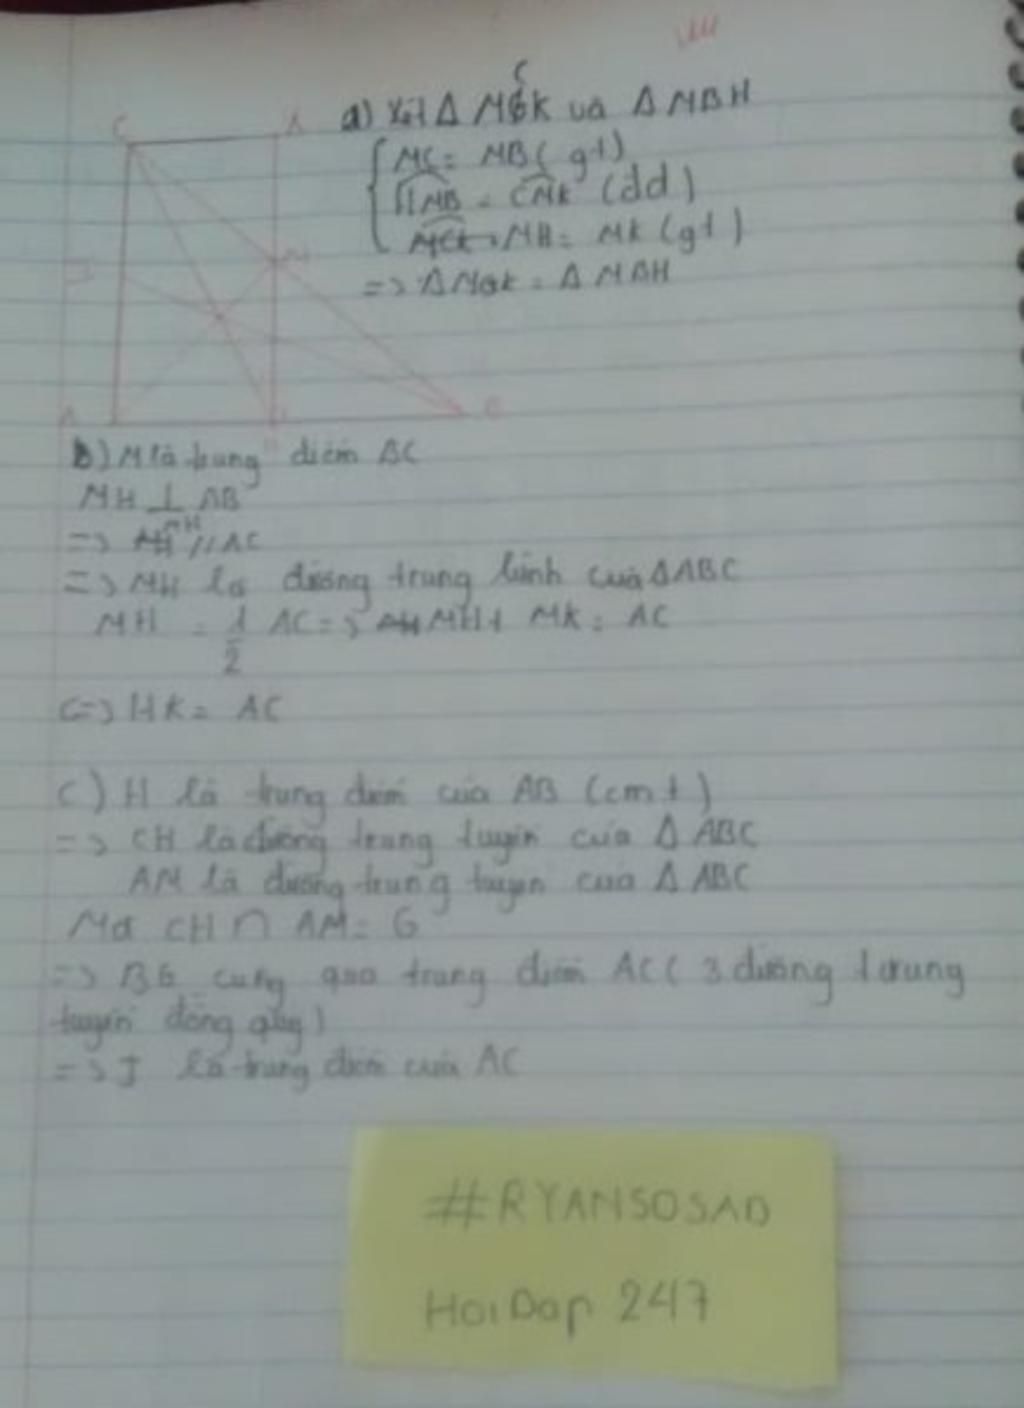 C K
a) Xét Δ MCK và Δ MBH
MC = MB (gt)
HMB = CMK (dd)
MH = MK (gt)
=> Δ MCK = Δ MBH
M
I
A H B
b) M là trung điểm BC
MH ⊥ AB
=> MH // AC
=> MH là đường trung bình của ΔABC
MH = 1/2 AC => MH + MK = AC
<=> HK = AC
c) H là trung điểm của AB (cmt)
=> CH là đường trung tuyến của Δ ABC
AM là đường trung tuyến của Δ ABC
Mà CH ∩ AM = G
=> BG cũng qua trung điểm AC ( 3 đường trung
tuyến đồng quy)
=> I là trung điểm của AC
#RYANSOSAD
HoiDap 247